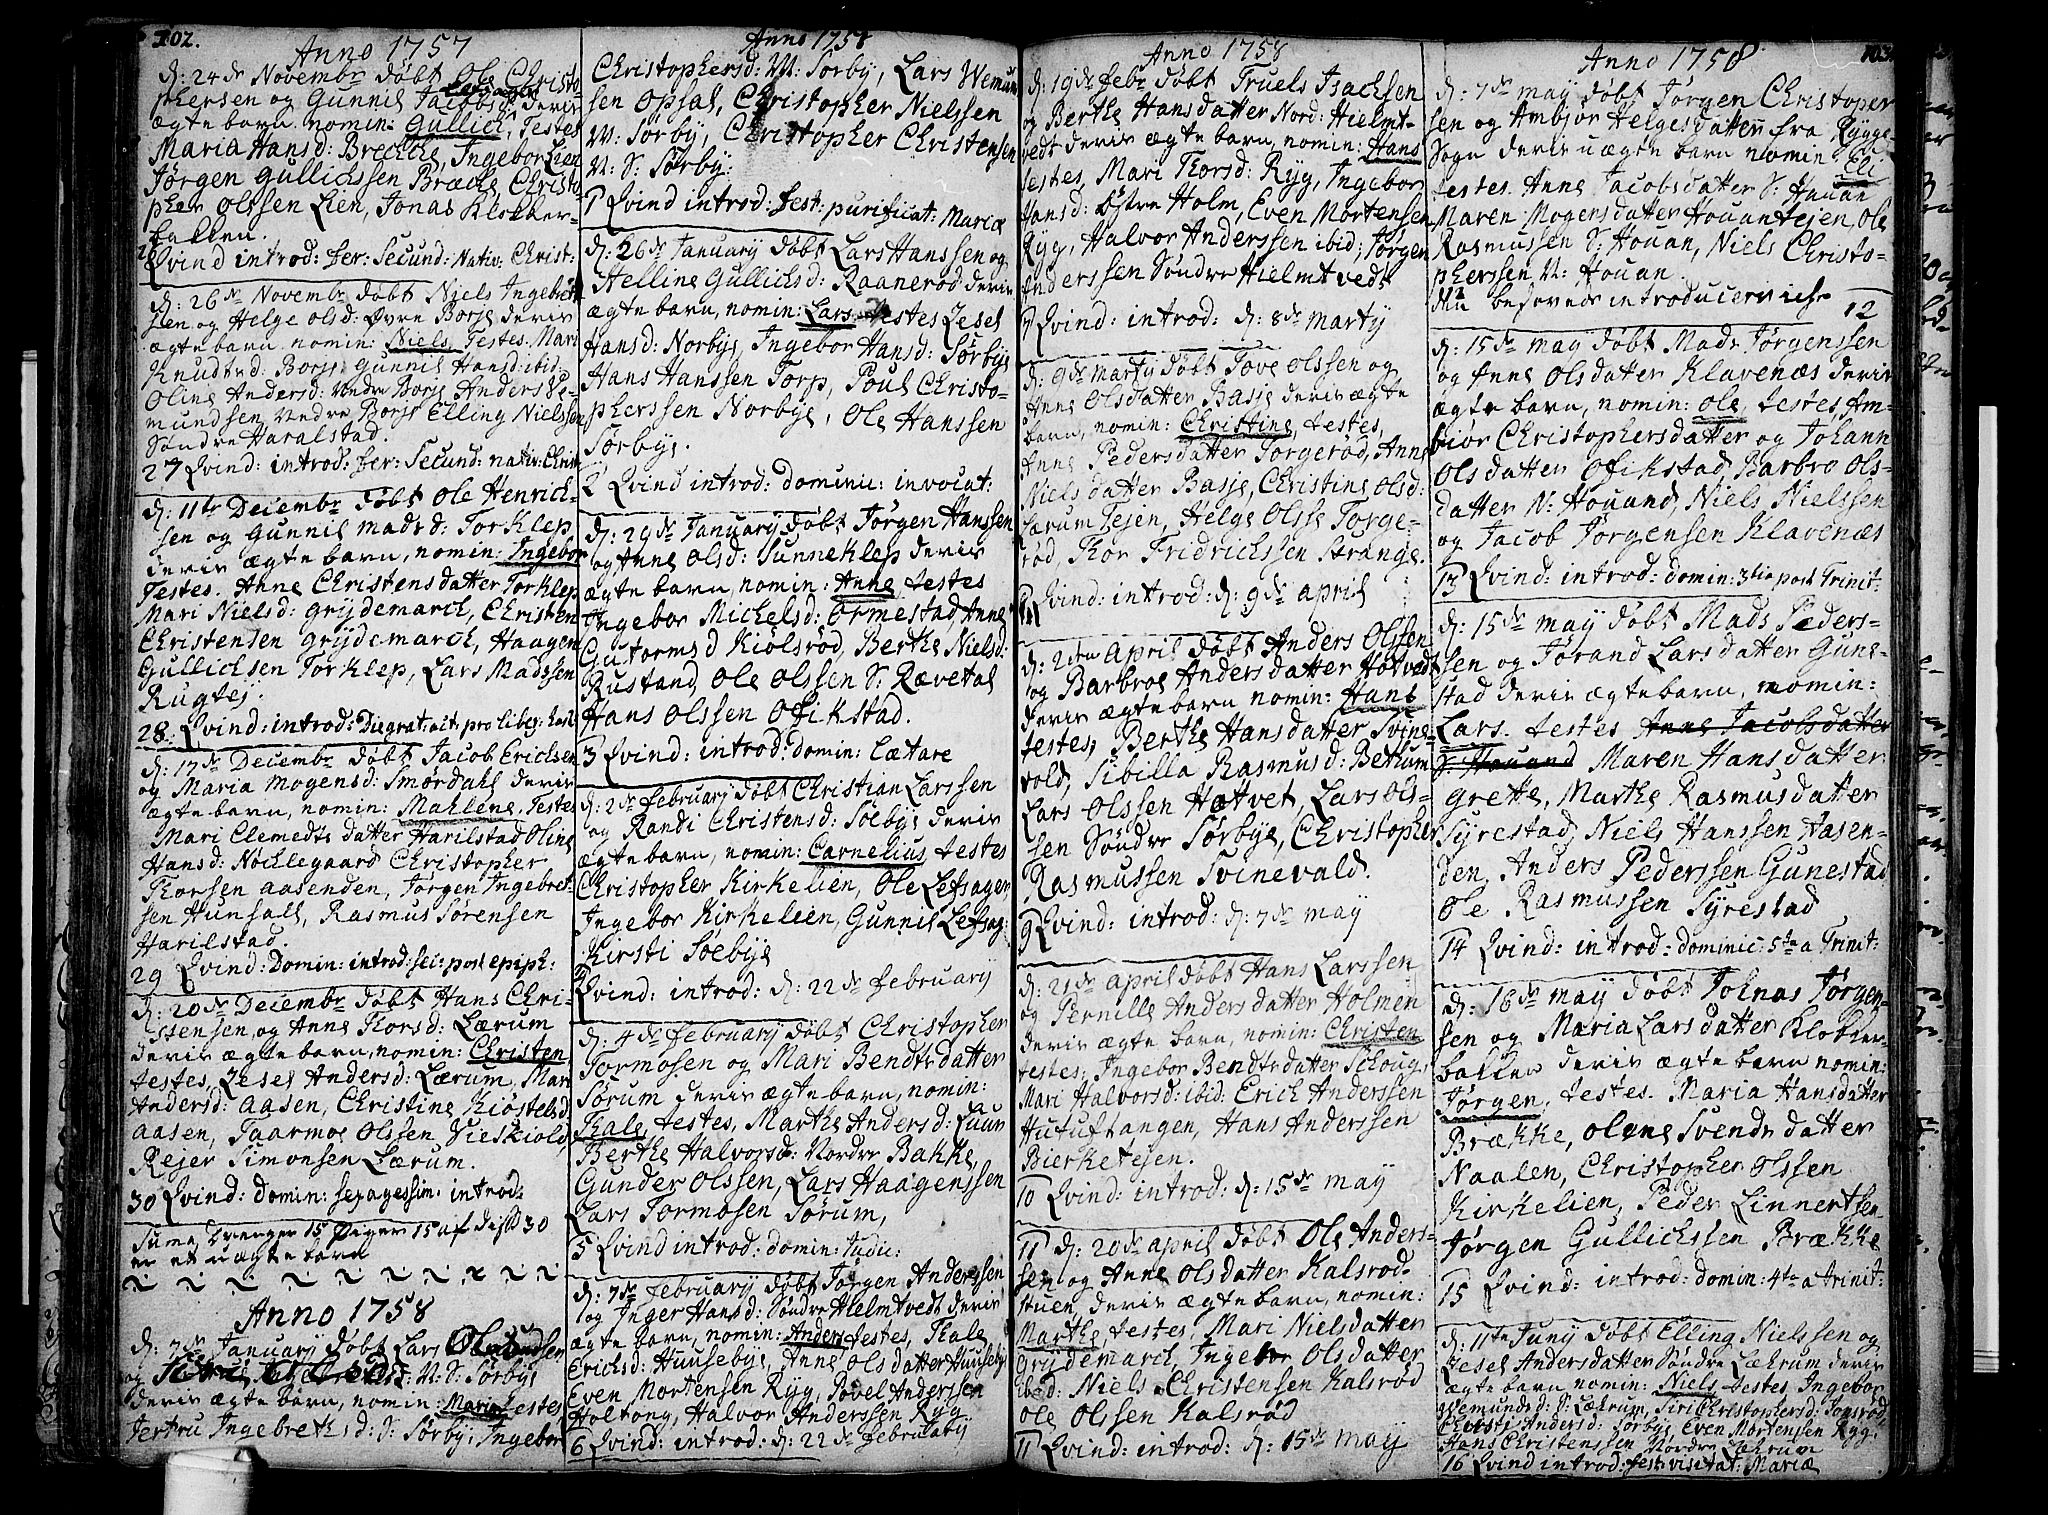 102.
Anno 1757
d: 24de Novembr døbt Ole Christo
phersen og Gunnil Jacobsd: deris
Lefsager
ægte barn nomin: Gullich, Testes
Maria Hansd: Breche, Ingebor Lien
Jørgen Gullichsen Bræche, Christo-
pher Olssen Lien, Jonas Klokker-
bakken.
Qvind introd: fer: Secund: Nativ: Christ:
d: 26de Novembr døbt Niels Ingebret
sen og Helge Olsd: Øvre Borje deris
ægte barn nomin: Niels, Testes. Mari
Knudtsd: Borje Gunnil Hansd: ibid:
Oline Andersd: Nedre Borje Anders Ve-
mundsen Nedre Borje Elling Nielssen
Søndre Haralstad.
27 Qvind: introd: fer: Secund: nativ: Christ
d: 11te Decembr døbt Ole Henrich-
sen og Gunnil Madsd: Torklep
deris ægte barn, nomin: Ingebor
Testes. Anne Christensdatter Torklep
Mari Nielsd: Grydemarck, Christen
Christensen Grydemarck, Haagen
Gullichsen Torklep, Lars Madssen
Rugtej.
28. Qvind: introd: Die grat: act: pro liber:
d: 17de Decembr døbt Jacob Erichsen
og Maria Mogensd: Smørdahl deris
ægte barn, nomin: Mahlene, Testes
Mari Clemedtsdatter Harilstad Oline
Hansd: Nøchlegaard Christopher
Thorsen Aasenden, Jørgen Ingebret-
sen Hunsall, Rasmus Sørensen
Harilstad.
29 Qvind: Domin: introd: sci: post epiph:
d: 20de Decembr døbt Hans Chri-
stensen, og Anne Thorsd: Lærum
deris ægte barn, nomin: Christen
testes, Zesel Andersd: Lærum, Mari
Andersd: Aasen, Christine Kiøstelsd
Aasen, Taarmoe Olssen Vieskiold,
Rejer Simonsen Lærum.
30 Qvind: domin: sexagessim: introd:
Suma, Drenger 15 Piger 15 af diss 30
er et uægte barn
Anno 1758
d: 7de January døbt Lars
og N: S: Sørbye
deris ægte barn, nomin: Maria testes
Jertru Ingebrethsd: S: Sørby, Ingebor
Anno 1758
Christophersd: N: Sørby, Lars Wemun
sen Opsal, Christopher Nielssen
N: Sørby, Christopher Christensen
N: S: Sørby:
1 Qvind introd: fest: purificat: Mariæ
d: 26de January døbt Lars Hanssen og
Helline Gullichsd: Raanerød deris
ægte barn, nomin: Lars testes Zesel
Hansd: Norbye, Ingebor Hansd: Sørbye
Hans Hanssen Torp, Poul Christo-
pherssen Norbye, Ole Hanssen
Sørbye.
2 Qvind introd: dominic: invocat:
d: 29de January døbt Jørgen Hanssen
og Anne Olsd: Sunneklep deris
ægte barn, nomin: Anne testes
Ingebor Michelsd: Ormestad, Anne
Gutormsd Kiølsrød, Berthe Nielsd:
Rustand, Ole Olssen S: Rævetal
Hans Olssen Ofikstad.
3 Qvind: introd: domin: Lætare
d: 2de February døbt Christian Larssen
og Randi Christensd: Soebye deris
ægte barn, nomin: Carnelius, testes
Christopher Kirkelien, Ole Lefsager,
Ingebor Kirkelien, Gunnil Lefsag:
Kirsti Soebye
Qvind: introd: d: 22de February
d: 4de February døbt, Christopher
Tormosen og Mari Bendtsdatter
Sørum deris ægte barn, nomin:
Thale, testes, Marthe Andersd: Luur
Berthe Halvorsd: Nordre Bakke,
Gunder Olssen, Lars Haagenssen
Lars Tormosen Sørum,
5 Qvind introd: domin: Judic:
d: 7de February døbt Jørgen Anderssen
og Inger Hansd: Søndre Hielmtvedt deris
ægte barn, nomin: Anders testes, Thale
Erichsd: Huusebye, Anne Olsdatter Huuseby
Even Mortensen Ryg, Povel Anderssen
Holtong, Halvor Anderssen Ryg
6 Qvind: introd: d: 22de February
Anno 1758
d: 19de Febr døbt Truels Isachsen
og Berthe Hansdatter Nord: Hielmt-
vedt deris ægte barn, nomin: Hans
testes, Mari Thorsd: Ryg, Ingebor
Hansd: Østre Holm, Even Mortensen
Ryg, Halvor Anderssen ibid; Jørgen
Anderssen Søndre Hielmtvedt
7 Qvind: introd: d: 8de Marty
d: 9de Marty døbt Tove Olssen og
Anne Olsdatter Basje deris ægte
barn, nomin: Christine, testes,
Anne Pedersdatter Torgerød, Anne
Nielsdatter Basje, Christine Olsd:
Lærum Tejen, Helge Olsse Torge-
rød, Thor Fridrichssen Strange.
Qvind: introd: d: 9de April
d: 2den April døbt Anders Olssen
og Barbroe Andersdatter Hotvedt
deris ægte barn nomin: Hans
testes, Berthe Hansdatter Svine-
vold, Sibilla Rasmusd: Bethum
Lars Olssen Hætvet, Lars Ols-
sen Søndre Sørbye, Christopher
Rasmussen Svinevald.
9 Qvind: introd: d: 7de May
d: 21de April døbt Hans Larssen
og Pernille Andersdatter Holmen
deris ægte barn, nomin: Christen
testes, Ingebor Bendtsdatter Schoug,
Mari Halvorsd: ibid: Erich Anderssen
Hutuftangen, Hans Anderssen
Bierketejen.
10 Qvind: introd: d: 15de May
11 d: 20de April døbt Ole Anders-
sen og Anne Olsdatter Kalsrød-
stuen, deris ægte barn, nomin:
Marthe, testes, Mari Nielsdatter
Grydemarck, Ingebor Olsdatter
ibed: Niels Christensen Kalsrød
Ole Olssen Kalsrød
11 Qvind: introd: d: 15de May
Anno 1758
103.
d: 7de May døbt Jørgen Christoper
sen og Ambjor Helgesdatter fra Rygge-
Sogn deris uægte barn nomin: Eli
testes. Anne Jacobsdatter S: Houan
Maren Mogensdatter Houantejen, Ole
Rasmussen S: Houan, Niels Christo-
pherssen N: Houan.
behøvede introduceris ich
12
d: 15de May døbt Mads Jørgenssen
og Anne Olsdatter Klavenæs deris
ægte barn, nomin: Ole, testes, Am-
biør Christophersdatter og Johann
Olsdatter Ofikstad, Barbro Ols-
datter N: Houand, Niels Nielssen
og Jacob Jørgensen Klavenæs
13 Qvind: introd: domin: 3tia post Trinit:
d: 15de May døbt Mads Peders-
sen og Jørand Larsdatter Gune-
stad deris ægte barn, nomin:
Lars. testes Anne Jacobsdatter
S: Houand Maren Hansdatter
Grette, Marthe Rasmusdatter
Syrestad, Niels Hanssen Aasen-
den, Anders Pederssen Gunestad
Ole Rasmussen Syrestad
14 Qvind: introd: dominic: 5ta a Trinit:
d: 16de May døbt Johnas Jørgen-
sen og Maria Larsdatter Klokker-
bakken deris ægte barn nomin:
Jørgen, testes. Maria Hansdatter
Brække, Oline Svendsdatter
Naalen, Christopher Olssen
Kirkelien, Peder Linnertsen
Jørgen Gullichssen Brække
15 Qvind: introd: domin: 4ta a trinit:
d: 11te Juny døbt Elling Nielssen og
Zesel Andersdatter Søndre Lækrum deris
ægte barn, nomin: Niels, testes, Ingebor
Wemundsd: S: Lækrum, Siri Christophersd: Sogsrød
Christi Andersd: Sørby, Even Mortensen Ryg,
Hans Christenssen Nordre Lækrum
16 Qvind introd: fest: visitat: Mariæ